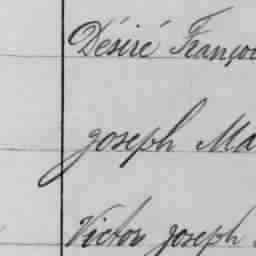 Désiré Franço
Joseph Ma
Victor Joseph